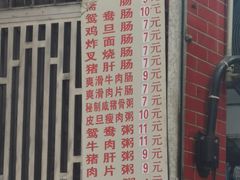 肠 10元
鸳鸯肠 7元
鸡旦肠 7元
炸面肠 7元
叉烧肠 7元
猪肝肠 9元
爽滑牛肉肠 7元
爽滑肉片肠 9元
秘制咸猪骨粥 9元
皮旦瘦肉粥 10元
鸳鸯粥 11元
牛肉粥 11元
猪肝粥 9元
肉片粥 9元